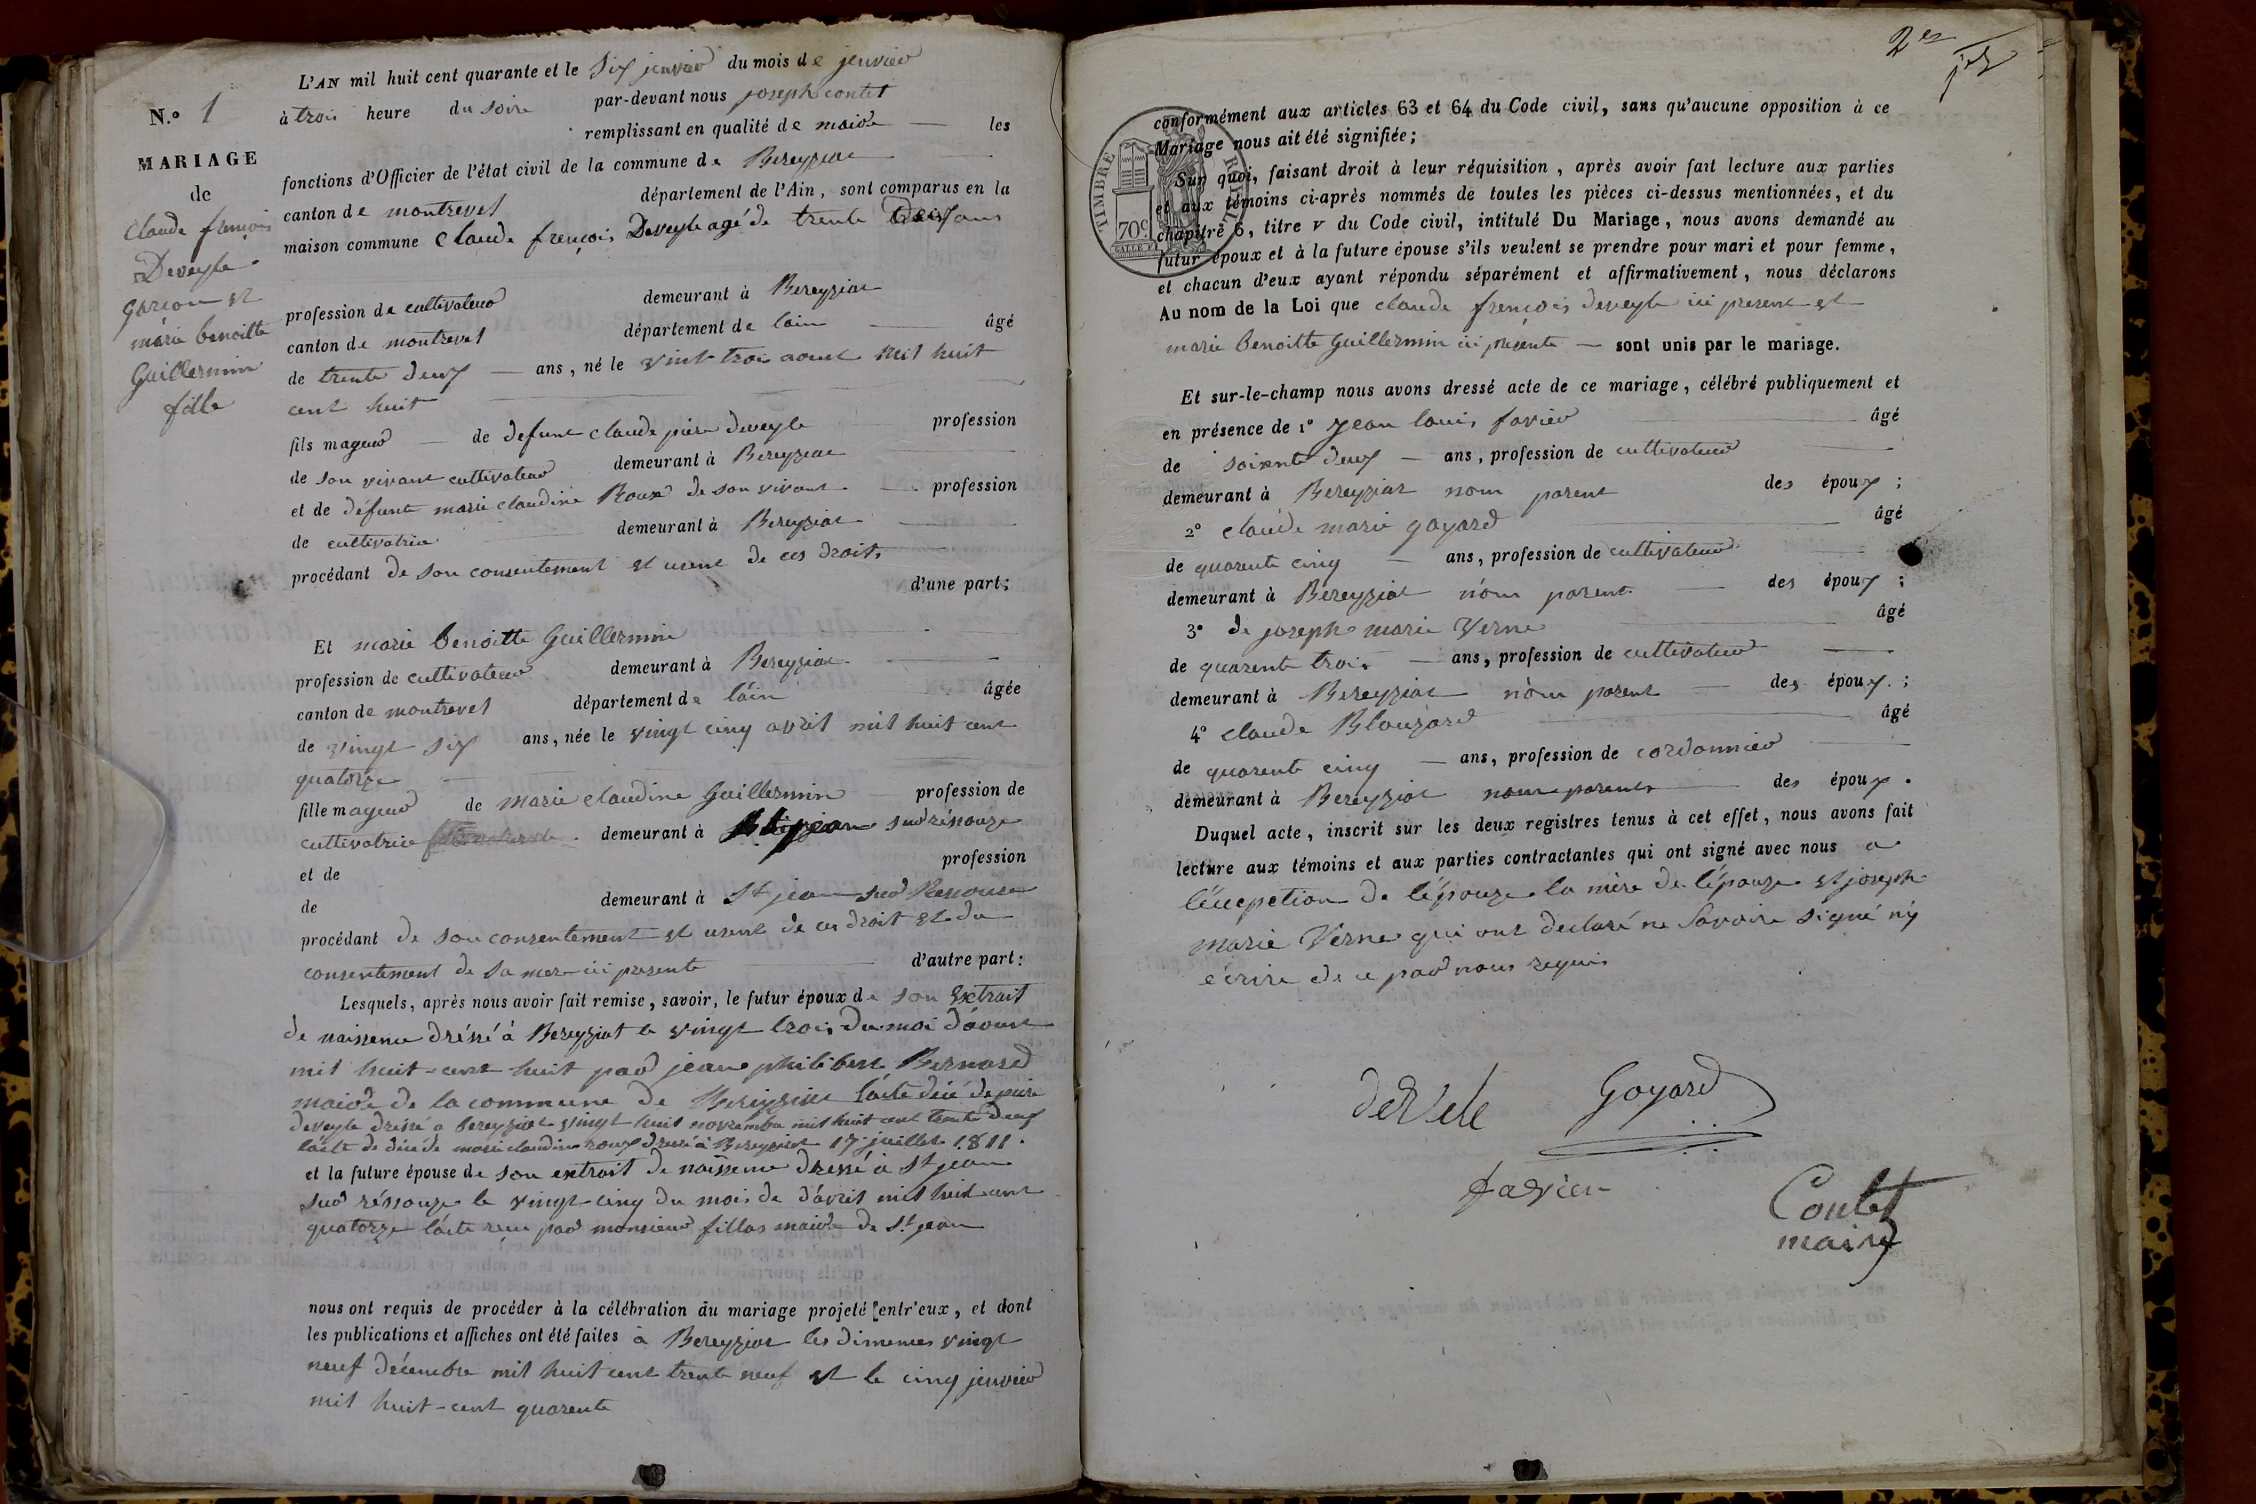 N.º 1
MARIAGE
de
claude françois
Deveyle
garcon et
marie benoitte
Guillermin
fille
L'AN mil huit cent quarante et le six jenvier du mois de jenvier
à trois heure du soire par-devant nous joseph contet
remplissant en qualité de maire les
fonctions d'Officier de l'état civil de la commune de Bereyziat
canton de montrevel département de l'Ain, sont comparus en la
maison commune claude françois Deveyle agé de trente ans
profession de cultivateur demeurant à Bereyziat
canton de montrevel département de lain âgé
de trente deux ans, né le vint trois aout mil huit
cent huit
fils mageur de defunt claude piere deveyle profession
de son vivant cultivateur demeurant à Bereyziat
et de défunte marie claudine Roux de son vivant profession
de cultivatrice demeurant à Bereyziat
procédant de son consentement et usent de ces droits
d'une part;
Et marie benoitte Guillermin
profession de cultivateur demeurant à Bereyziat
canton de montrevel département de l'ain âgée
de vingt six ans, née le vingt cinq avril mil huit cent
quatorze
fille mageur de marie claudine Guillermin profession de
cultivatrice demeurant à st jean sur résouze
et de profession
de demeurant à st jean sur Resouze
procédant de son consentement et usent de ces droit et du
consentement de sa mere ici presente d'autre part:
Lesquels, après nous avoir fait remise, savoir, le futur époux de son Extrait
de naissence dréssé à Bereyziat le vingt trois du moi d'aout
mil huit-cent huit par jean philibert Bernard
maire de la commune de Bereyziat l'acte décé de piere
deveyle dréssé a bereyziat vingt huit novembre mil huit cent trente deux
l'acte de décé de marie claudine roux dressé à Bereyziat 17 juillet 1811.
et la future épouse de son extrait de naissence dressé à st jean
sur réssouze le vingt-cinq du mois de d'avril mil huit cent
quatorze l'acte reçu par monsieur fillas maire de st jean
nous ont requis de procéder à la célébration du mariage projeté entr'eux, et dont
les publications et affiches ont été faites à Bereyziat les dimenes vingt
neuf décembre mil huit cent trente neuf et le cinq jenvier
mil huit-cent quarente
2es
TIMBRE ROYAL
70c
conformément aux articles 63 et 64 du Code civil, sans qu'aucune opposition à ce
Mariage nous ait été signifiée;
Sur quoi, faisant droit à leur réquisition, après avoir fait lecture aux parties
et aux témoins ci-après nommés de toutes les pièces ci-dessus mentionnées, et du
chapitre 6, titre v du Code civil, intitulé Du Mariage, nous avons demandé au
futur époux et à la future épouse s'ils veulent se prendre pour mari et pour femme,
et chacun d'eux ayant répondu séparément et affirmativement, nous déclarons
Au nom de la Loi que claude françois deveyle ici present et
marie benoitte Guillermin ici présente sont unis par le mariage.
Et sur-le-champ nous avons dressé acte de ce mariage, célébré publiquement et
en présence de 1º jean louis favier âgé
de soixente deux ans, profession de cultivateur
demeurant à Bereyziat nom parent des époux;
2º claude marie goyard âgé
de quarente cinq ans, profession de cultivateur
demeurant à Bereyziat nom parent des époux;
3º de joseph marie Verne âgé
de quarente trois ans, profession de cultivateur
demeurant à Bereyziat nom parent des époux;
4º claude Blouzard âgé
de quarente cinq ans, profession de cordonnier
demeurant à Bereyziat nom parents des époux.
Duquel acte, inscrit sur les deux registres tenus à cet effet, nous avons fait
lecture aux témoins et aux parties contractantes qui ont signé avec nous a
l'éxcepetion de l'épouze la mère de l'épouze et joseph
marie Verne qui ont declaré ne Savoire signé ny
écrire de ce par nous requis
Goyard
favier
Contet
maire